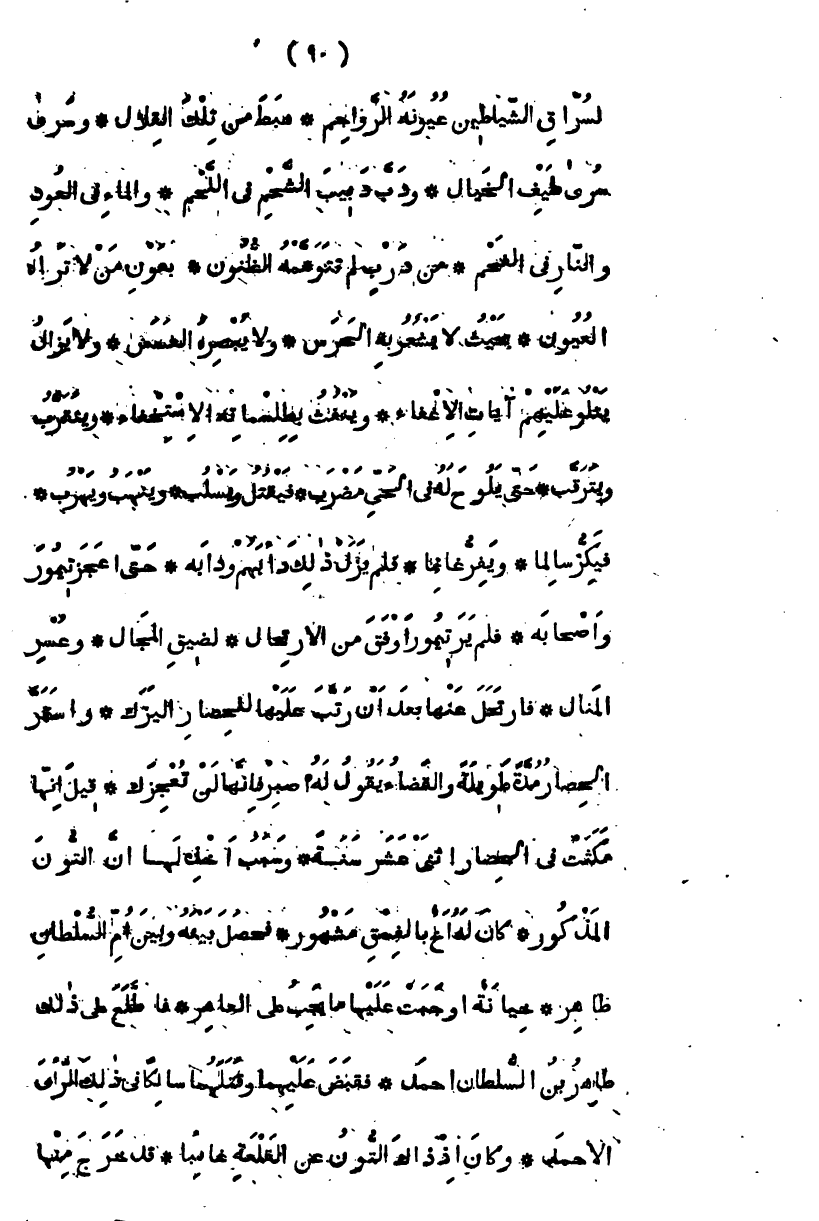 (٩٠)
لسُرّاقِ الشّياطين عُيونهُ الرَّواجم * هبَطَ من تِلْكَ القِلال * وسَرى
سُرىٰ طَيْفِ الخَيال * ودَبَّ دَبيبَ الشَّحْمِ فى اللَّحْمِ * والماءِ فى العُودِ
والنّارِ فى الفَحْمِ * من دَرْبٍ لم تتَوَهَّمْهُ الظُّنون * بعَوْنِ مَنْ لا تَراهُ
العُيون * بحَيْثُ لا يَشْعُرُ بهِ الحَرَس * ولا يُبْصِرهُ العَسَس * ولا يَزالُ
يَتْلو عَلَيْهِمْ آياتِ الإِخْفاء * ويَنفُثُ بطِلِسْماتِه الاِسْتِخْفاء * ويتقرَّبُ
ويَترقَّب * حَتّى يَلُوحَ لهُ فى الحَيِّ مَضْرَب * فيَقْتل ويَسلُب * ويَنْهَبُ ويَهْرُب *
فيَكرُّ سالِما * ويَفِرُّ غانِما * فلم يَزَلْ ذٰلِكَ دَأْبَهُمْ ودَابَه * حَتّى اعْجَزَ تِيمُورَ
وأَصْحابَه * فلم يَرَ تِيمُورُ أَوْفَقَ من الارتِحال * لضِيقِ المَجال * وعُسْرِ
المَنال * فارتَحَلَ عَنْها بعدَ أَنْ رَتَّبَ عَلَيْها للحِصارِ اليَزَك * واستَقَرَّ
الحِصارُ مُدَّةً طَويلَةً والقَضاءُ يَقُولُ لَهُ اصبِرْ فإنَّها لَنْ تُعْجِزَك * قِيلَ إنّها
مَكَثَتْ فى الحِصارِ اثنَىْ عَشَر سَنَةً * وسَبَبُ أخْذِه لَها انَّ التُّونَ
المَذْكُور * كانَ لَهُ أَخٌ بالفِسْقِ مَشْهُور * فحصَلَ بَينَهُ وبَينَ أُمِّ السُّلْطانِ
طاهِر * خِيانَةٌ اوجَبَتْ عَلَيْها ما يَجِبُ على العاهِر * فاطَّلَعَ على ذٰلِكَ
طاهِرُ بنُ السُّلطانِ احمد * فقبَضَ عَلَيْهِما وقتَلَهُما سالِكًا فى ذٰلِكَ الرَّأىَ
الاحمد * وكانَ إِذْ ذاكَ التُّونُ عن القَلْعَةِ غائِبا * قد خَرَجَ مِنْها